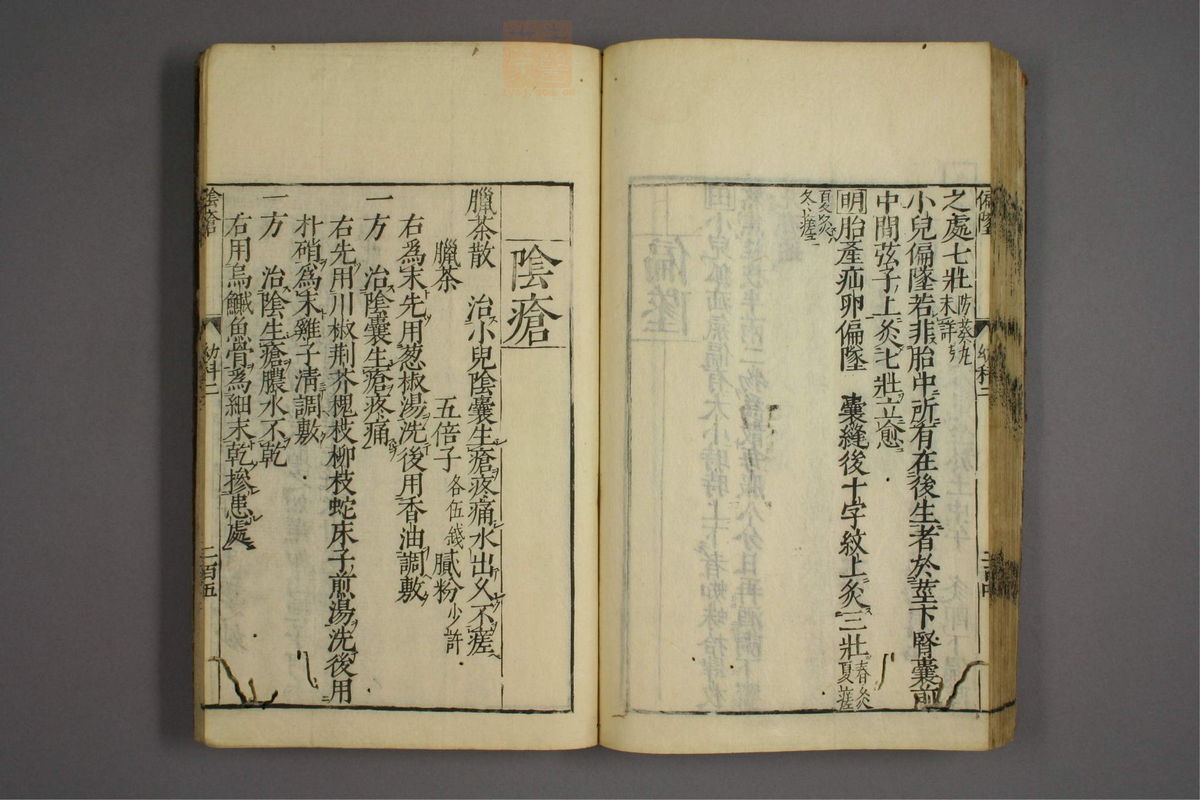 偏墜
之處七壯
小兒偏墜若非胎中所有在後生者於莖下腎囊前
中間弦子上灸七壯立愈
明胎產疝卵偏墜 囊縫後十字紋上灸三壯春灸夏瘥
夏灸冬瘥
陰瘡
臘茶散 治小兒陰囊生瘡疼痛水出久不瘥
臘茶 五倍子各伍錢 膩粉少許
右爲末先用葱椒湯洗後用香油調敷
一方 治陰囊生瘡疼痛
右先用川椒荆芥槐枝柳枝蛇床子煎湯洗後用
朴硝爲末雞子清調敷
一方 治陰生瘡膿水不乾
右用烏鰂魚骨爲細末乾摻患處
陰瘡
幼科二
二百五